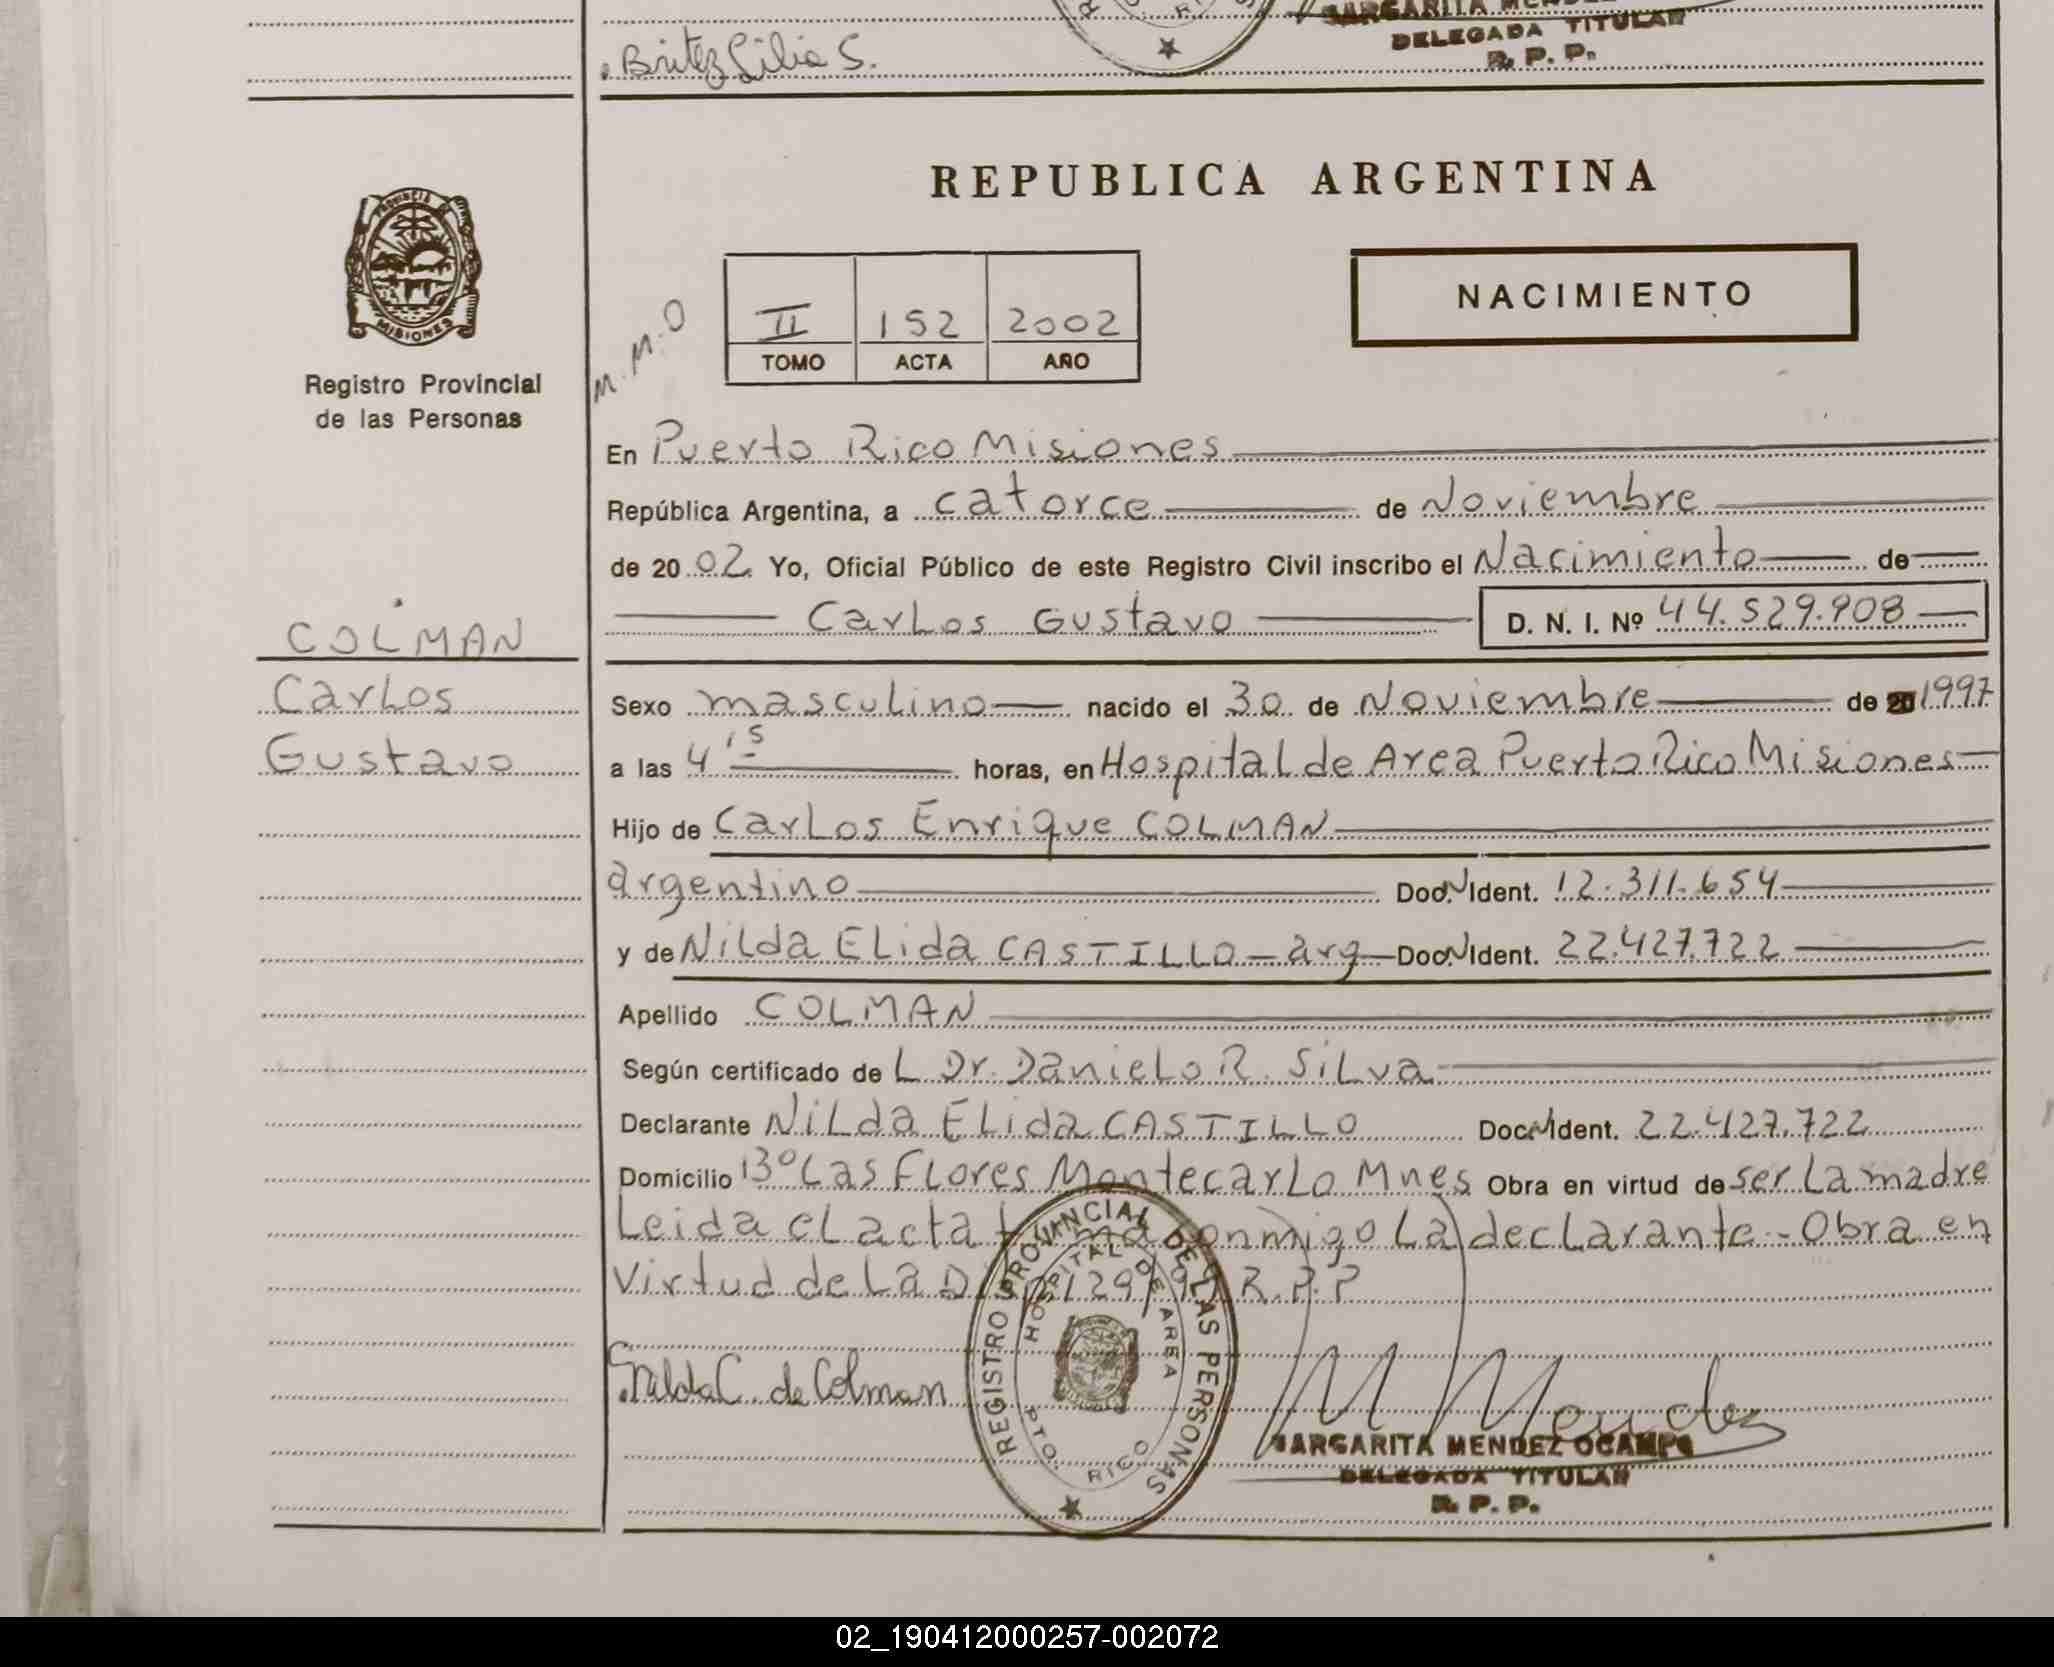 MARGARITA
DELEGADA TITULAR
R. P. P.
Britez Lilia S.
REPUBLICA ARGENTINA
PROVINCIA DE
MISIONES
Registro Provincial
de las Personas
M.M.O
II 152 2002
TOMO ACTA AÑO
NACIMIENTO
En Puerto Rico Misiones
República Argentina, a catorce de Noviembre
de 2002 Yo, Oficial Público de este Registro Civil inscribo el Nacimiento de
Carlos Gustavo D. N. I. Nº 44.529.908
COLMAN
Carlos
Gustavo
Sexo masculino nacido el 30 de Noviembre de 20 1997
a las 4 15 horas, en Hospital de Area Puerto Rico Misiones
Hijo de Carlos Enrique COLMAN
argentino Doc. N Ident. 12.311.654
y de Nilda Elida CASTILLO - arg - Doc. N Ident. 22.427.722
Apellido COLMAN
Según certificado de L Dr. Danielo R. Silva
Declarante Nilda Elida CASTILLO Doc. N Ident. 22.427.722
Domicilio 13º Las Flores Montecarlo Mnes Obra en virtud de ser La madre
Leida el acta conmigo La declarante - Obra en
virtud de La R.P.P
Nilda C. de Colman
REGISTRO PROVINCIAL DE LAS PERSONAS
HOSPITAL DE AREA
PTO. RICO
M Mendez
MARGARITA MENDEZ OCAMPO
DELEGADA TITULAR
R. P. P.
02_190412000257-002072